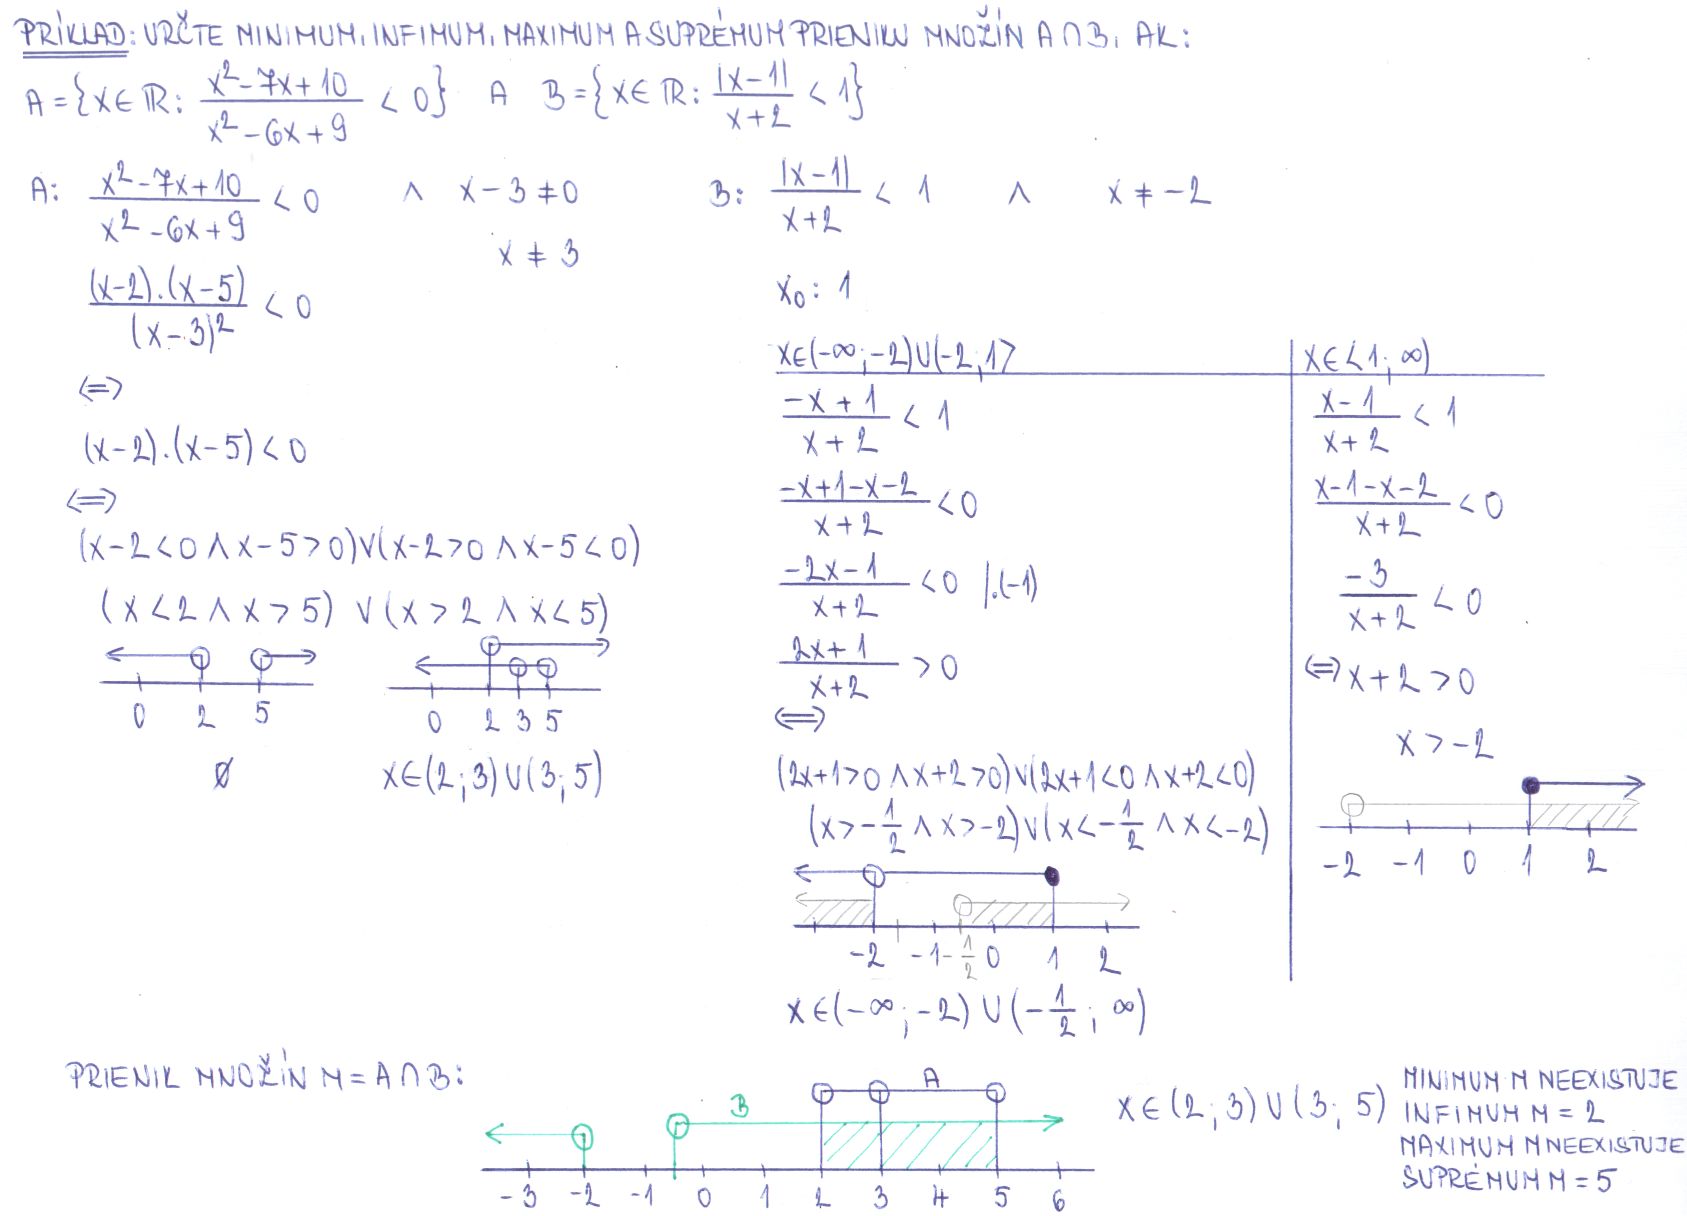 PRÍKLAD: URČTE MINIMUM, INFIMUM, MAXIMUM A SUPRÉMUM PRIENIKU MNOŽÍN A∩B, AK:
A = {x∈ℝ: (x²-7x+10)/(x²-6x+9) < 0} A B = {x∈ℝ: |x-1|/(x+2) < 1}
A: (x²-7x+10)/(x²-6x+9) < 0 ∧ x-3≠0
x ≠ 3
(x-2).(x-5)/(x-3)² < 0
⇔
(x-2).(x-5) < 0
⇔
(x-2<0 ∧ x-5>0) ∨ (x-2>0 ∧ x-5<0)
(x<2 ∧ x>5) ∨ (x>2 ∧ x<5)
0 2 5 0 2 3 5
∅ x∈(2;3)∪(3;5)
B: |x-1|/(x+2) < 1 ∧ x ≠ -2
x₀: 1
x∈(-∞;-2)∪(-2;1>
(-x+1)/(x+2) < 1
(-x+1-x-2)/(x+2) < 0
(-2x-1)/(x+2) < 0 |.(-1)
(2x+1)/(x+2) > 0
⇔
(2x+1>0 ∧ x+2>0) ∨ (2x+1<0 ∧ x+2<0)
(x>-1/2 ∧ x>-2) ∨ (x<-1/2 ∧ x<-2)
-2 -1 -1/2 0 1 2
x∈(-∞;-2)∪(-1/2;∞)
x∈<1;∞)
(x-1)/(x+2) < 1
(x-1-x-2)/(x+2) < 0
-3/(x+2) < 0
⇔ x+2 > 0
x > -2
-2 -1 0 1 2
PRIENIK MNOŽÍN M = A∩B:
B A
-3 -2 -1 0 1 2 3 4 5 6
x∈(2;3)∪(3;5)
MINIMUM M NEEXISTUJE
INFIMUM M = 2
MAXIMUM M NEEXISTUJE
SUPRÉMUM M = 5